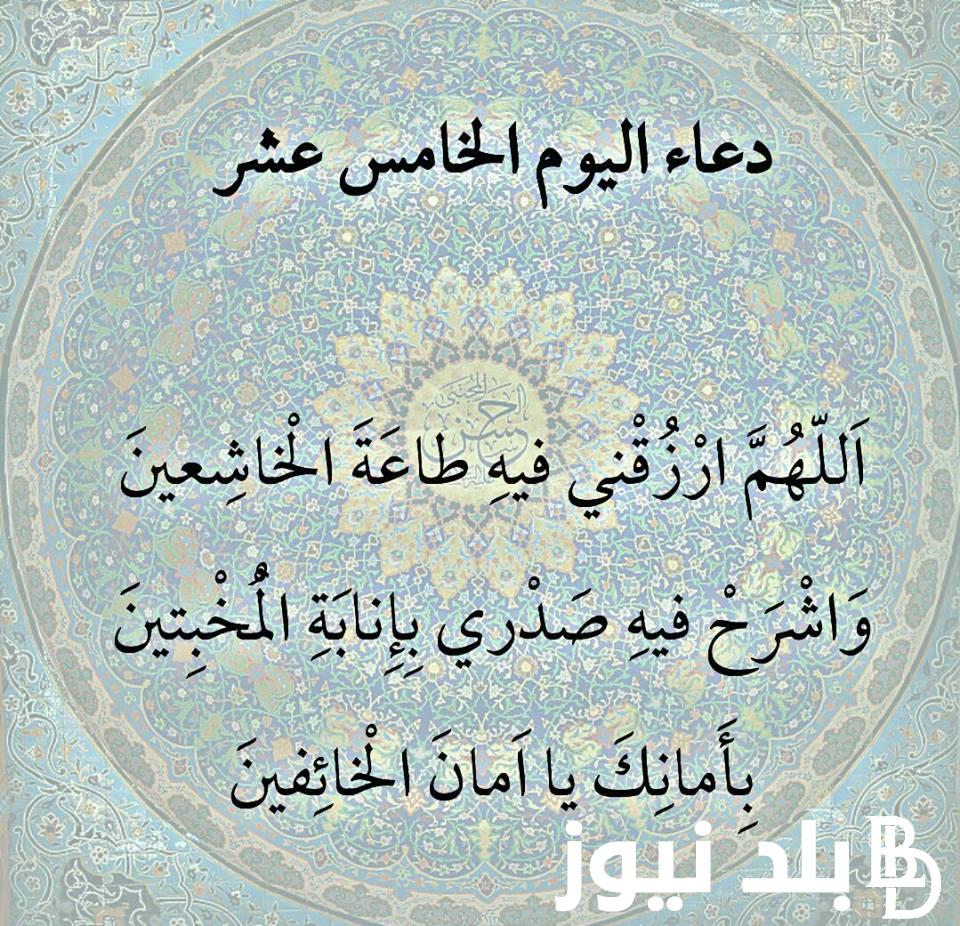 دعاء اليوم الخامس عشر
اَللّهُمَّ ارْزُقْني فيهِ طاعَةَ الْخاشِعينَ
وَاشْرَحْ فيهِ صَدْري بِإِنابَةِ الْمُخْبِتينَ
بِأَمانِكَ يا اَمانَ الْخائِفينَ
بلد نيوز BD